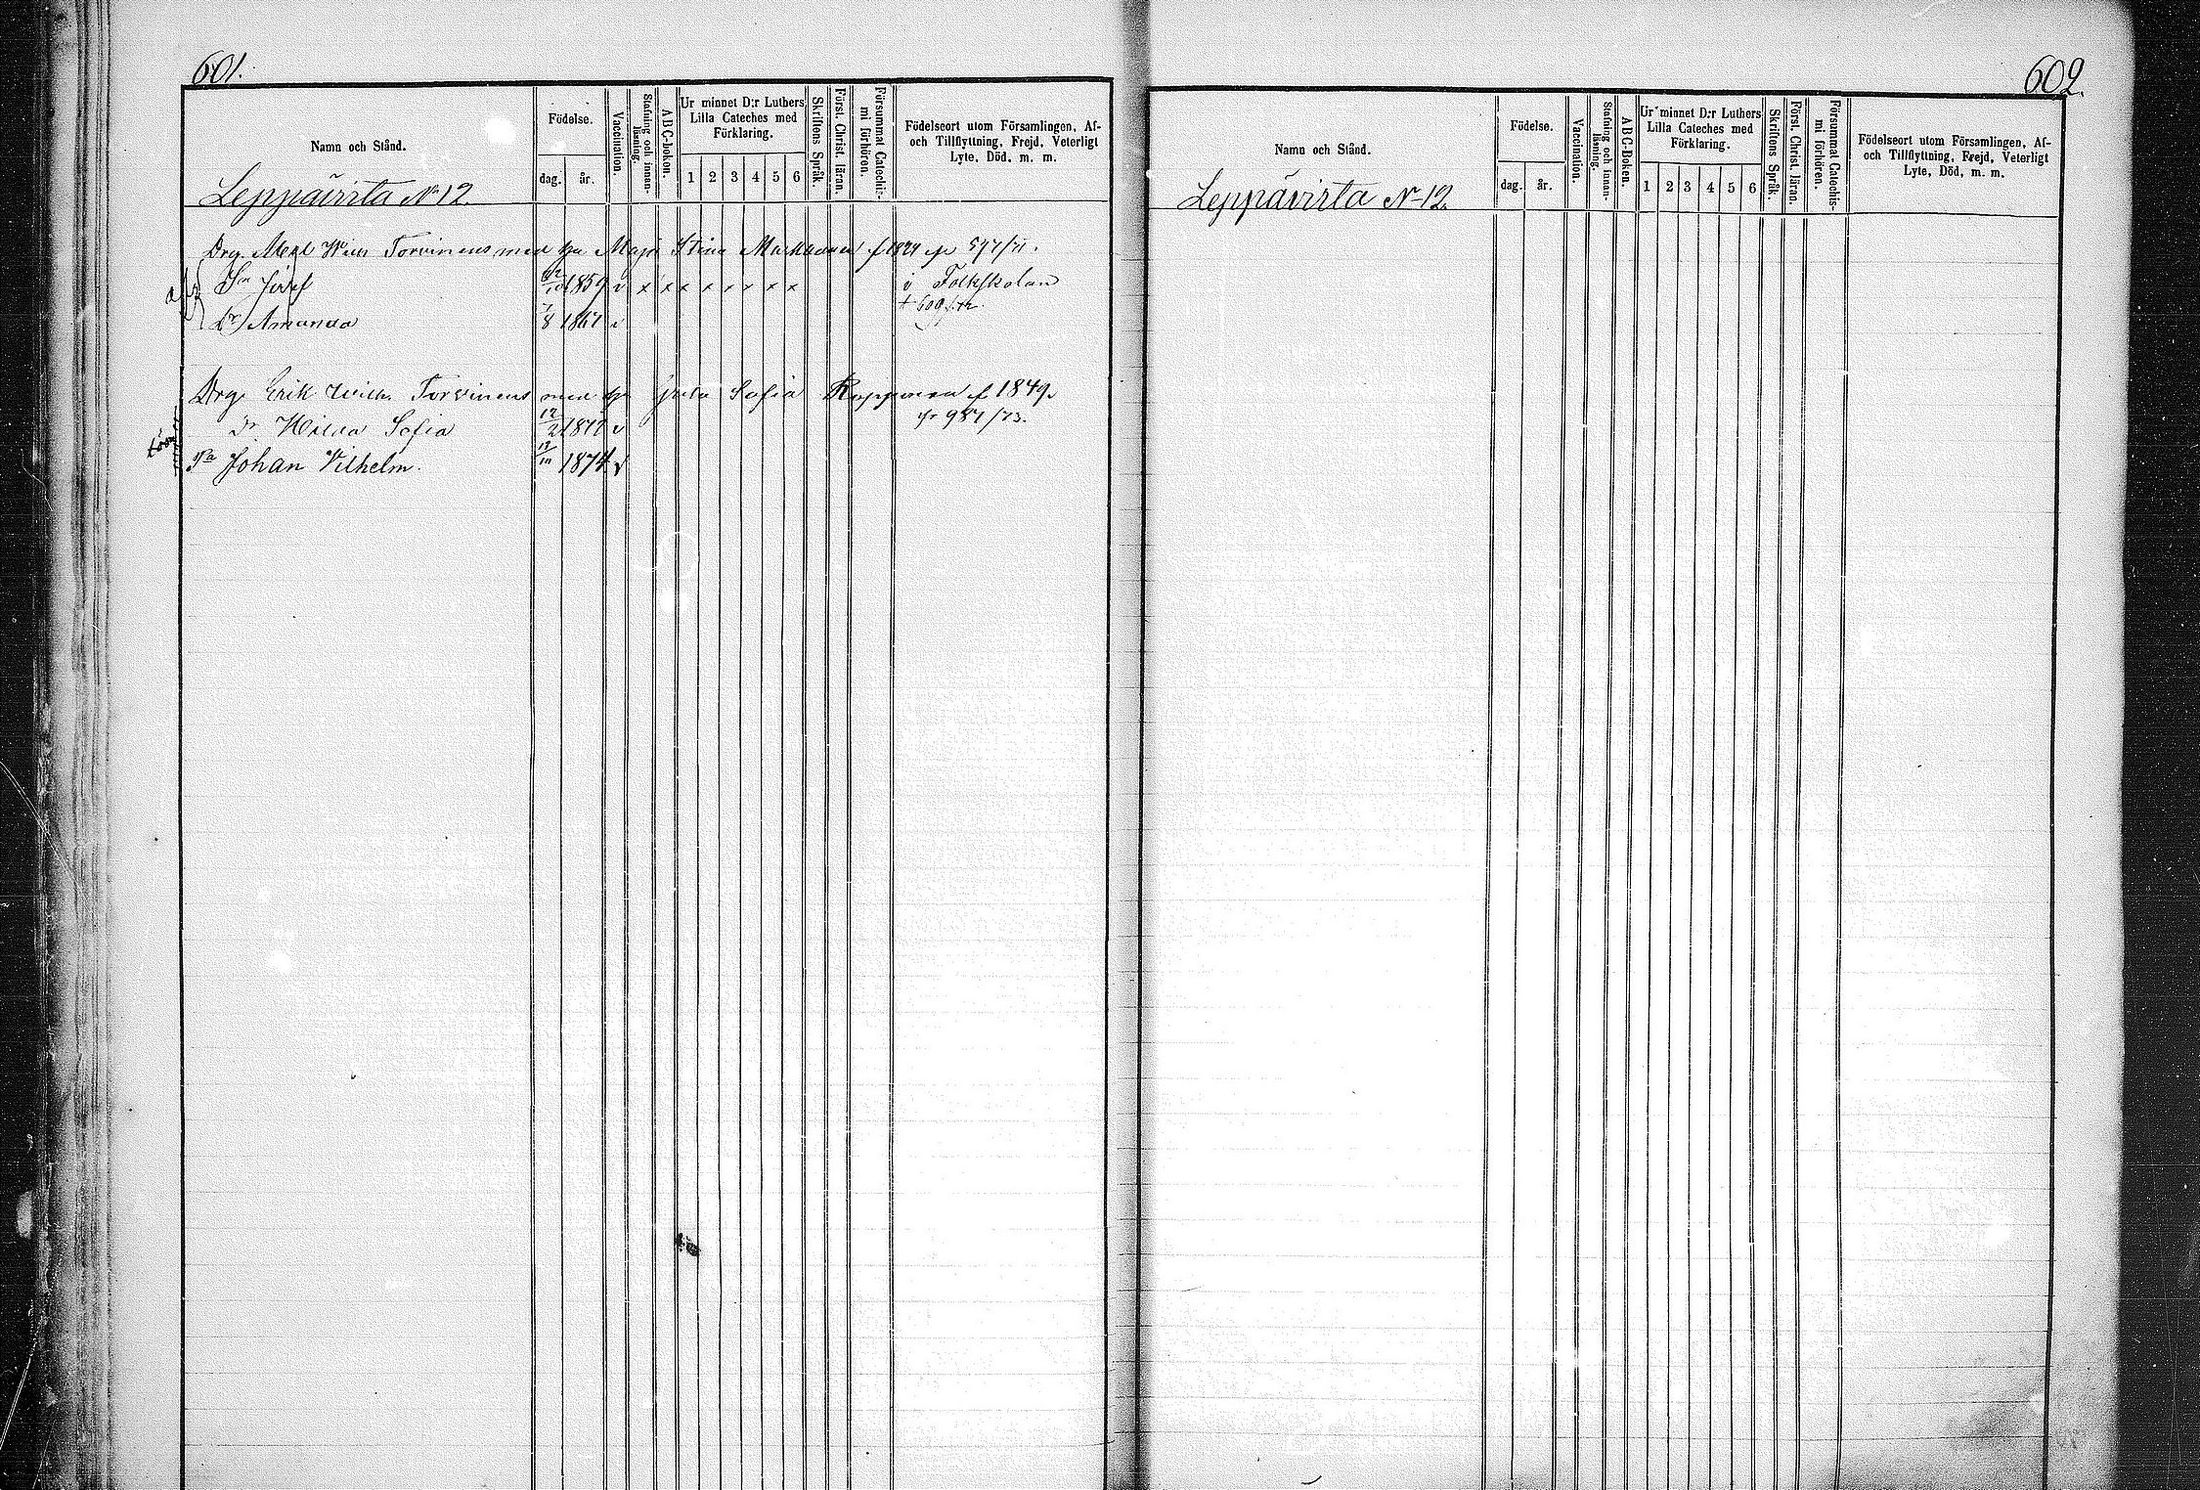 601.
Namn och Stånd.
Födelse.
dag. år.
Vaccination.
Stafning och innan-läsning.
ABC-boken.
Ur minnet D:r Luthers
Lilla Cateches med
Förklaring.
1 2 3 4 5 6
Skriftens Språk.
Först. Christ. läran.
Försummat Catechis-mi förhören.
Födelseort utom Församlingen, Af-
och Tillflyttning, Frejd, Veterligt
Lyte, Död, m. m.
Leppävirta No 12.
Drg. Wilh Torvinens med Maja Stina f 1829 597/71.
Sn Josef 1859 v x x x x x x x x i Folkskolan
Dr Amanda 7/8 1867 v
Drg. Erik Wilh. Torvinens med Greta Sofia f 1849.
987/73.
Dr Hilda Sofia 12/2 1872 v
Sn Johan Vilhelm. 1874 v
602.
Namn och Stånd.
Födelse.
dag. år.
Vaccination.
Stafning och innan-läsning.
ABC-Boken.
Ur minnet D:r Luthers
Lilla Cateches med
Förklaring.
1 2 3 4 5 6
Skriftens Språk.
Först. Christ. läran.
Försummat Catechis-mi förhören.
Födelseort utom Församlingen, Af-
och Tillflyttning, Frejd, Veterligt
Lyte, Död, m. m.
Leppävirta No 12.